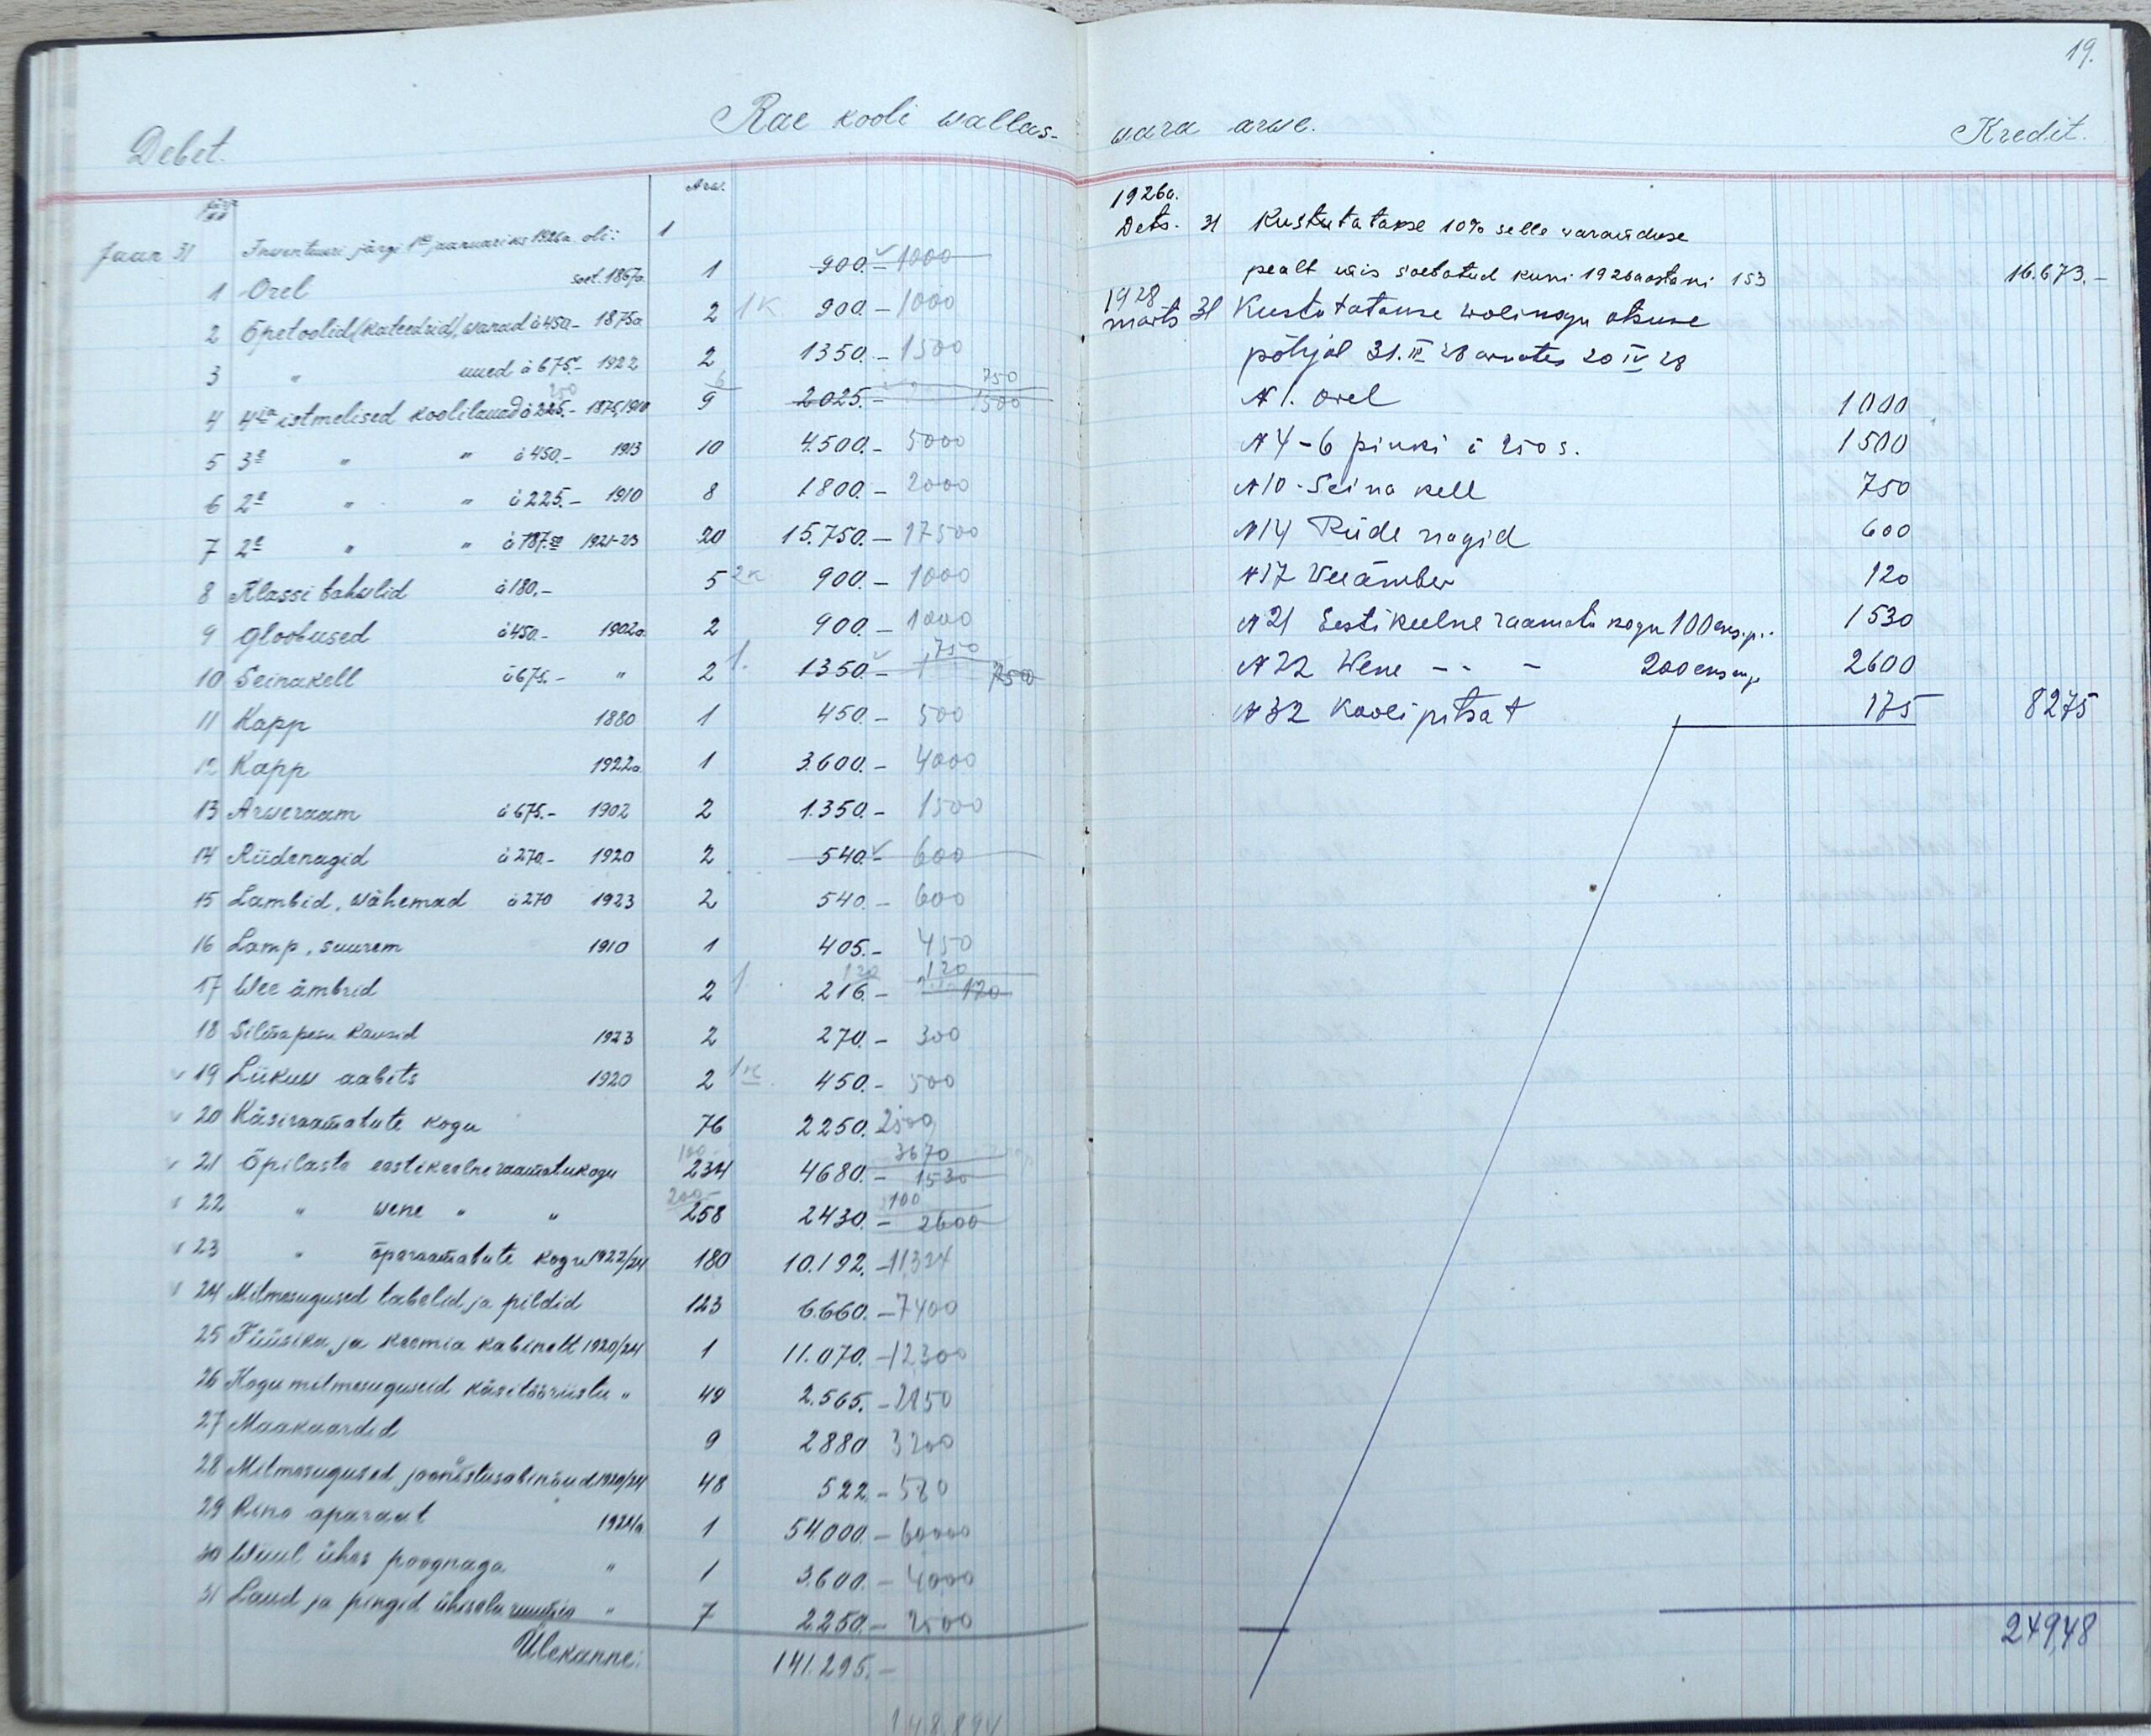 19.
Debet. Rae kooli wallas- wara arwe. Kredit.
Arw.
Jaan 31 Inventuuri järge 1 jaanuariks 1926a oli: 1
1 Orel soet. 1867a. 1 900.- 1000
2 Õpetoolid (kateedrid), wanad à 450.- 1875a 2 1K 900.- 1000
3 " uued à 675.- 1922 2 1350.- 1500
250 6 750
4 4ja istmelised koolilauad à 225.- 1875,1910 9 2025.- 1500
5 3e " " à 450.- 1913 10 4.500.- 5000
6 2e " " à 225.- 1910 8 1.800.- 2000
7 2e " " à 787.50 1921-23 20 15.750.- 17500
8 Klassi tahwlid à 180.- 5 2K 900.- 1000
9 Gloobused à 450.- 1902a. 2 900.- 1000
750
10 Seinakell à 675.- " 2 1. 1350.- 750
11 Kapp 1880 1 450.- 500
12 Kapp 1922a. 1 3.600.- 4000
13 Arweraam à 675.- 1902 2 1.350.- 1500
14 Riidenagid à 270.- 1920 2 540.- 600
15 Lambid, wähemad à 270 1923 2 540.- 600
16 Lamp, suurem 1910 1 405.- 450
120 120
17 Wee ämbrid 2 1 216.- 120
18 Silmapesu kausid 1923 2 270.- 300
19 Liikuw aabits 1920 2 1K 450.- 500
20 Käsiraamatute kogu 76 2250. 2500
100.- 3670
21 Õpilaste eestikeelne raamatukogu 234 4680.- 1530
200.- 100
22 " wene " " 258 2430.- 2600
23 " õperaamatute kogu 1922/24 180 10.192.- 11324
24 Mitmesugused tabelid ja pildid 123 6.660.- 7400
25 Füüsika ja keemia kabinett 1920/24 1 11.070.- 12300
26 Kogu mitmesuguseid käsitööriistu " 49 2.565.- 2850
27 Maakaardid 9 2880 3200
28 Mitmesugused joonistusabinõud 1920/24 48 522.- 580
29 Kino aparaat 1924a 1 54.000.- 60000
30 Wiiul ühes poognaga " 1 3.600.- 4000
31 Laud ja pingid ühiselu ruumis " 7 2.250.- 2500
Ülekanne: 141.295.-
148.894
1926a.
Dets. 31 Kustutatakse 10% selle waranduse
pealt mis soetatud kuni 1926 aastani 153 16.673.-
1928
marts 31 Kustutatakse wolinogu otsuse
põhjal 31.III 28 arwates 20 IV 28
N 1. Orel 1000
N 4 - 6 pinki à 250 s. 1500
N 10 - Seina kell 750
N 14 Riide nagid 600
N 17 Weeämber 120
N 21 Eestikeelne raamatu kogu 100 eks. 1530
N 22 Wene - " - 200 2600
N 32 Kooli pitsat 175 8275
24948